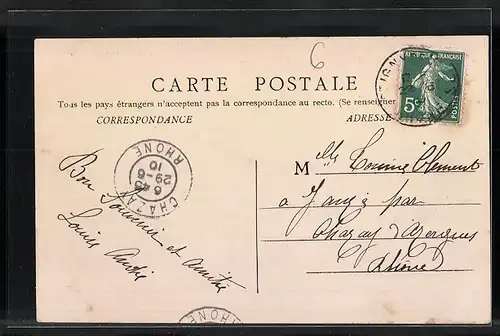 6
CARTE POSTALE
Tous les pays étrangers n'acceptent pas la correspondance au recto. (Se renseigner
CORRESPONDANCE
ADRESSE
5c
POSTES
CHAZAY
RHONE
6 45
29-6
10
Bon Souvenir et amitié
Louise
Mlle Clement
à par
Chazay d'Azergues
Rhône
RHONE